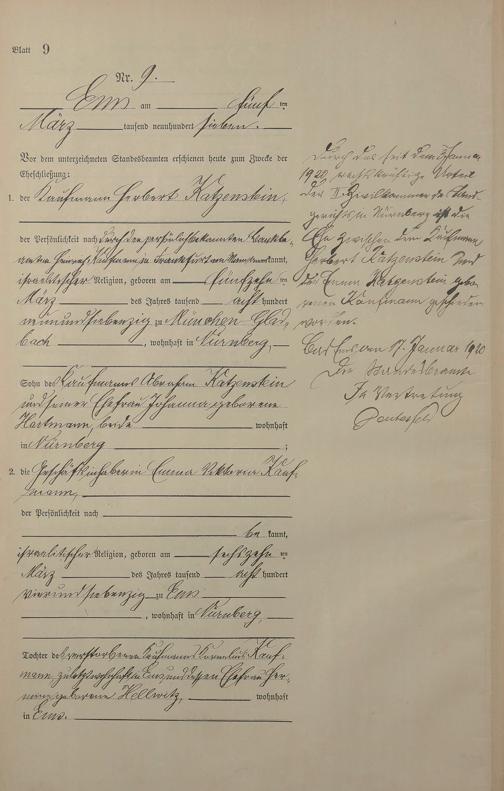 Blatt 9
Nr. 9.
Ems am fünften
März tausend neunhundert sieben.
Vor dem unterzeichneten Standesbeamten erschienen heute zum Zwecke der
Eheschließung:
1. der Kaufmann Herbert Katzenstein,
der Persönlichkeit nach durch den persönlich bekannten
kannt,
israelitischer Religion, geboren am fünfzehnten
März des Jahres tausend acht hundert
neunundsiebenzig zu München-Glad-
bach, wohnhaft in Nürnberg,
Sohn des Kaufmanns Abraham Katzenstein
und seiner Ehefrau Johanna geborene
Hartmann, beide wohnhaft
in Nürnberg;
2. die Geschäftsinhaberin Emma Viktoria Kauf-
mann,
der Persönlichkeit nach
be kannt,
israelitischer Religion, geboren am sechszehnten
März des Jahres tausend acht hundert
vierundsiebenzig zu Ems
, wohnhaft in Nürnberg,
Tochter des verstorbenen Kaufmanns Kornelius Kauf-
mann, zuletzt wohnhaft in Ems und dessen Ehefrau Her-
geborene Hellwitz, wohnhaft
in Ems.
Durch das seit dem Januar
1920 rechtskräftige Urteil
der II. Zivilkammer des Land-
gerichts in Nürnberg ist die
Ehe zwischen dem Kaufmann
Herbert Katzenstein und
der Emma Katzenstein gebo-
renen Kaufmann geschieden
worden.
Bad Ems am 17. Januar 1920
Der Standesbeamte
In Vertretung